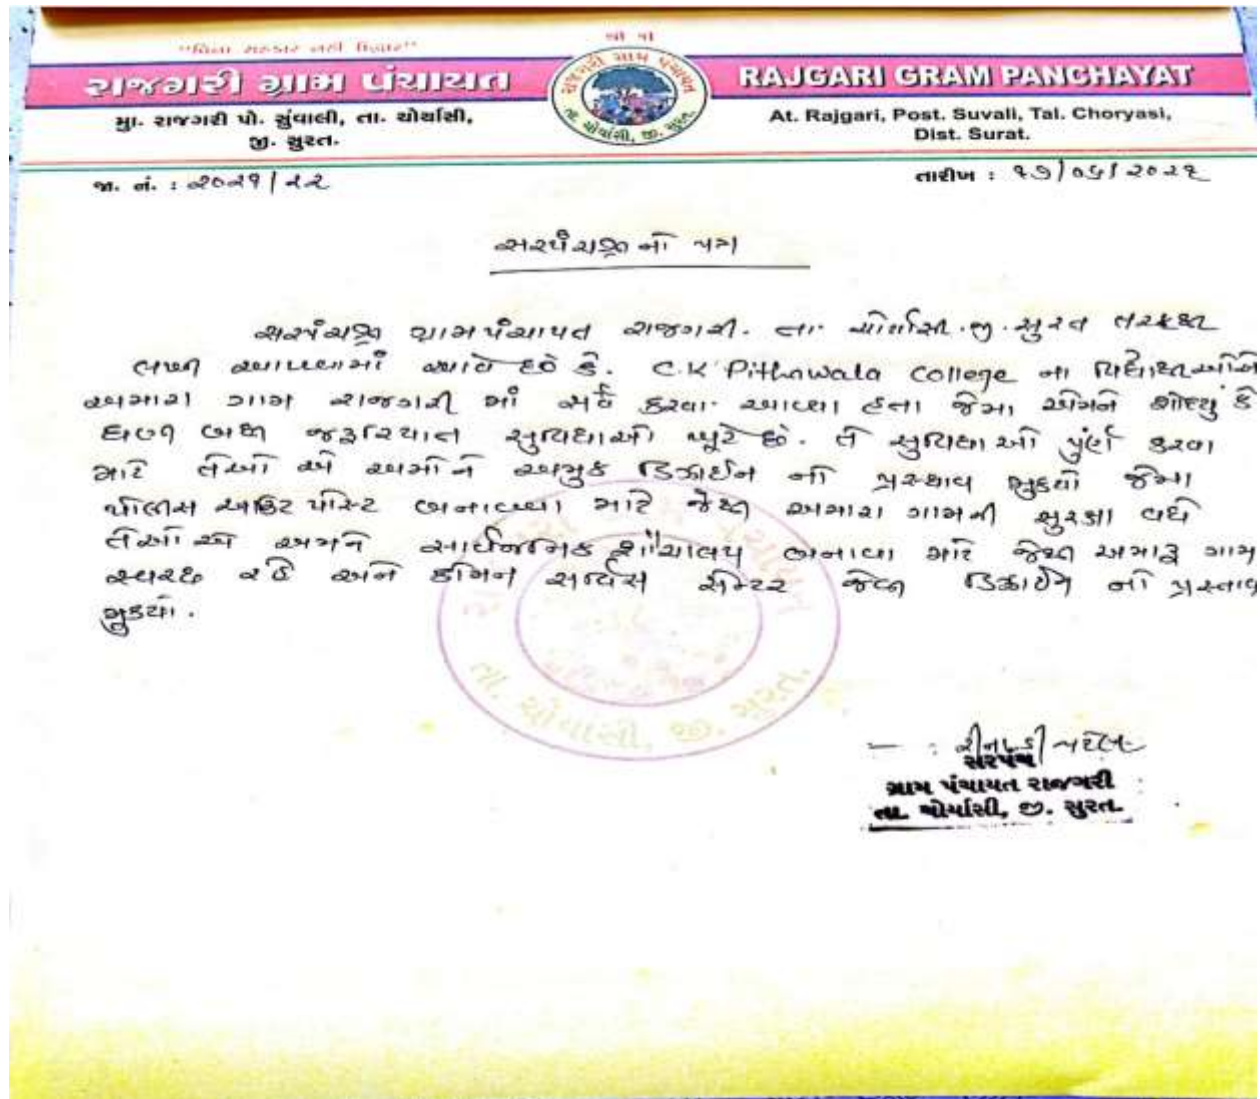 "વિના સહકાર નહી ઉદ્ધાર"
રાજગરી ગ્રામ પંચાયત
મુ. રાજગરી પો. સુંવાલી, તા. ચોર્યાસી,
જી. સુરત.
રાજગરી ગ્રામ પંચાયત
તા. ચોર્યાસી, જી. સુરત.
RAJGARI GRAM PANCHAYAT
At. Rajgari, Post. Suvali, Tal. Choryasi,
Dist. Surat.
જા. નં. : ૨૦૨૧/૨૨
તારીખ : ૧૭/૦૬/૨૦૨૨
સરપંચશ્રી નો પત્ર
સરપંચશ્રી ગ્રામપંચાયત રાજગરી. તા. ચોર્યાસી. જી. સુરત તરફથી
લખી આપવામાં આવે છે કે. C.K Pithawala College ના વિદ્યાર્થીઓને
અમારા ગામ રાજગરી માં સર્વે કરવા આવ્યા હતા જેમા એમને શોધ્યું કે
ઘણી બધી જરૂરિયાત સુવિધાઓ ખૂટે છે. તે સુવિધા ઓ પુર્ણ કરવા
માટે તેઓ એ અમોને અમુક ડિઝાઈન નો પ્રસ્થાવ મુકયો જેમા
પોલીસ આઉટ પોસ્ટ બનાવવા માટે જેથી અમારા ગામની સુરક્ષા વધે
તેઓ એ અમને સાર્વજનિક શૌચાલય બનાવા માટે જેથી અમારૂ ગામ
સ્વચ્છ રહે અને કોમન સર્વિસ સેન્ટર જેવી ડિઝાઈન નો પ્રસ્તાવ
મુકયો.
તા. ચોર્યાસી, જી. સુરત.
સરપંચ
ગ્રામ પંચાયત રાજગરી
તા. ચોર્યાસી, જી. સુરત.